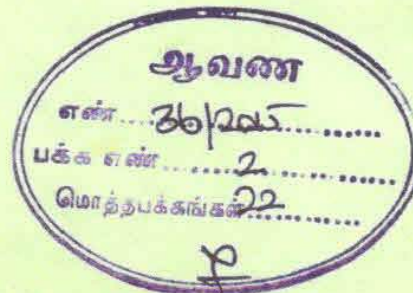 ஆவண
எண்....36/2015............
பக்க எண்........2...............
மொத்தபக்கங்கள்22............